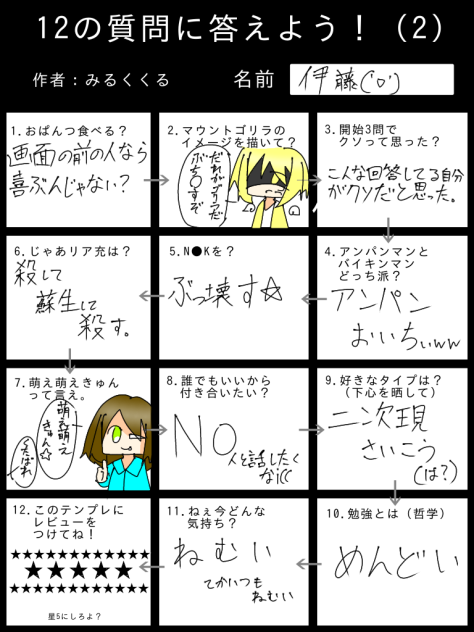 12の質問に答えよう！（2）
作者：みるくくる
名前
伊藤('ω')
1.おぱんつ食べる？
画面の前の人なら
喜ぶんじゃない？
2.マウントゴリラの
イメージを描いて？
だれがゴリラだ
ぶち〇すぞ
3.開始3問で
クソって思った？
こんな回答してる自分
がクソだと思った。
4.アンパンマンと
バイキンマン
どっち派？
アンパン
おいちぃww
5.N●Kを？
ぶっ壊す☆
6.じゃあリア充は？
殺して
蘇生して
殺す。
7.萌え萌えきゅん
って言え。
萌え萌え
きゅん☆
くたばれ
8.誰でもいいから
付き合いたい？
NO
人と話したく
ない((
9.好きなタイプは？
（下心を晒して）
二次現
さいこう
(は?)
10.勉強とは（哲学）
めんどい
11.ねぇ今どんな
気持ち？
ねむい
てかいつも
ねむい
12.このテンプレに
レビューを
つけてね！
★★★★★★★★★★★★★
★★★★★
★★★★★★★★★★★★★
星5にしろよ？